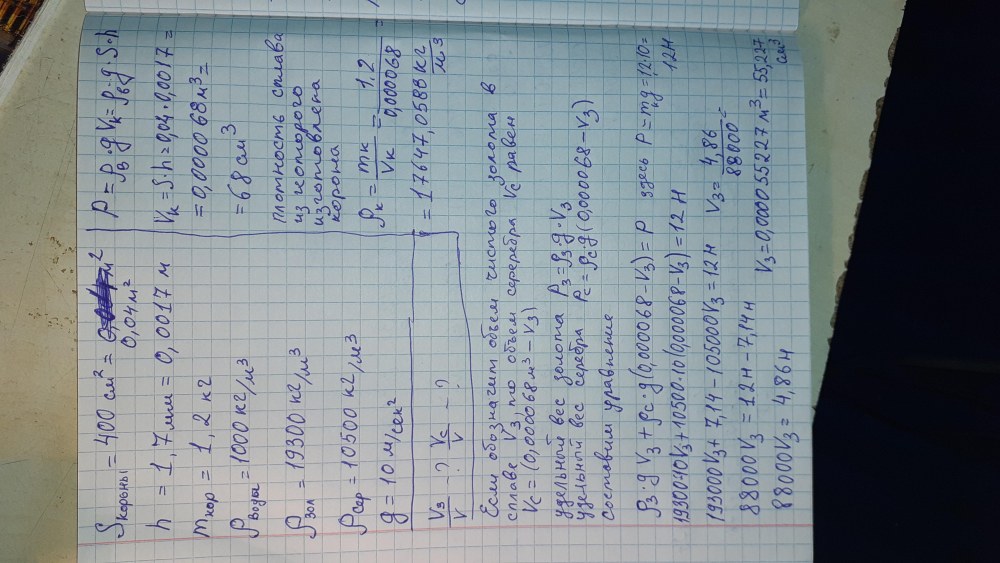 S корыны = 400 см² = м²
0,04 м²
h = 1,7 мм = 0,0017 м
m кор = 1,2 кг
ρ воды = 1000 кг/м³
ρ зол = 19300 кг/м³
ρ сер = 10500 кг/м³
g = 10 м/сек²
Vз/V - ? Vc/V - ?
P = ρв·g Vк = ρв·g·S·h
Vк = S·h = 0,04·0,0017 =
= 0,000068 м³ =
= 68 см³
плотность сплава
из которого
изготовлена
корона
ρк = mк/Vк = 1,2/0,000068 =
= 17647,0588 кг/м³
Если обозначит объем чистого золота в
сплаве Vз, то объем серебра Vc равен
Vc = (0,000068 м³ - Vз)
удельный вес золота Pз = ρз·g·Vз
удельный вес серебра Pc = ρc·g(0,000068 - Vз)
Составим уравнение
ρз·g Vз + ρc·g(0,000068 - Vз) = P здесь P = mкg = 1,2·10 =
12 Н
19300·10Vз + 10500·10(0,000068 - Vз) = 12 Н
193000Vз + 7,14 - 105000Vз = 12 Н Vз = 4,86/88000 =
88000Vз = 12 Н - 7,14 Н
88000Vз = 4,86 Н Vз = 0,000055227 м³ = 55,227
см³